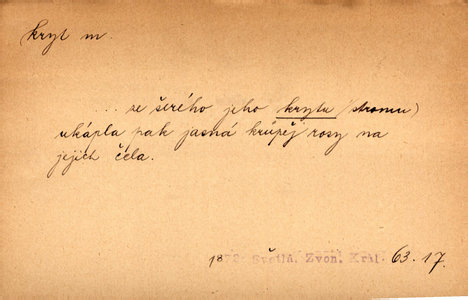 kryt m.
... ze šerého jeho krytu (stromu)
ukápla pak jasná krůpěj rosy na
jejich čela.
1873 Světlá. Zvon. Král. 63.17.